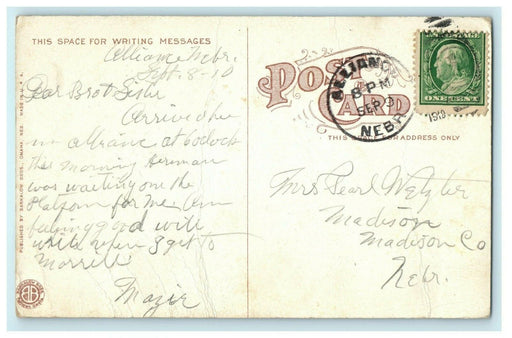 THIS SPACE FOR WRITING MESSAGES
Alliance Nebr.
Sept. 8-10
Dear Brot Sister
Arrived here
in alliance at 6 oclock
this morning Herman
was waiting on the
platform for me. Am
feeling good will
write when I get to
Morrill
Mazie
PUBLISHED BY BARKALOW BROS., OMAHA, NEB. MADE IN U.S.A.
POST CARD
THIS SPACE FOR ADDRESS ONLY
ALLIANCE
8 PM
SEP
NEBR
ONE CENT
Mrs Pearl Wetzler
Madison
Madison Co
Nebr.